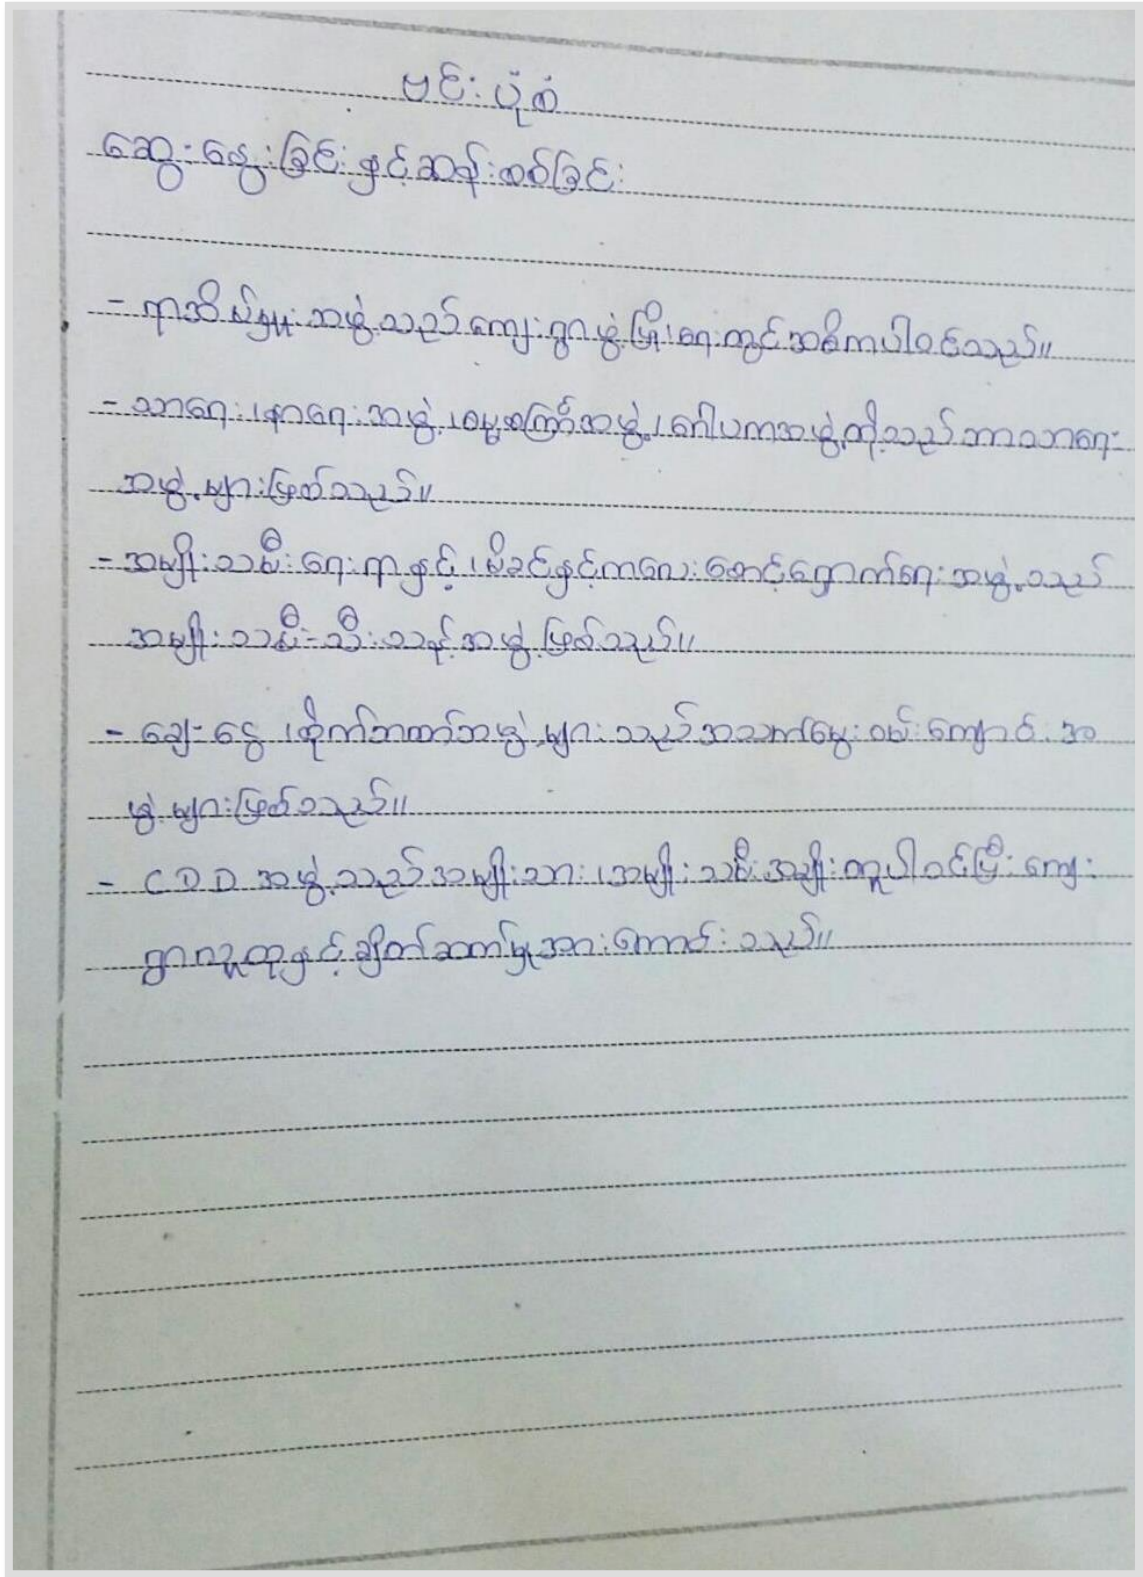 ဗင်းပုံစံ
ဆွေးနွေးခြင်းနှင့်ဆန်းစစ်ခြင်း
- ရာအိမ်မှူးအဖွဲ့သည်ကျေးရွာဖွံ့ဖြိုးရေးတွင်အဓိကပါဝင်သည်။
- သာရေး၊နာရေးအဖွဲ့၊ဓမ္မစကြာအဖွဲ့၊ဂေါပကအဖွဲ့တို့သည်ဘာသာရေး
အဖွဲ့များဖြစ်သည်။
- အမျိုးသမီးရေးရာနှင့်၊မိခင်နှင့်ကလေးစောင့်ရှောက်ရေးအဖွဲ့သည်
အမျိုးသမီးသီးသန့်အဖွဲ့ဖြစ်သည်။
- ချေးငွေ၊စိုက်ဘဏ်အဖွဲ့များသည်အသက်မွေးဝမ်းကျောင်းအ
ဖွဲ့များဖြစ်သည်။
- CDD အဖွဲ့သည်အမျိုးသား၊အမျိုးသမီးအချိုးတူပါဝင်ပြီးကျေး
ရွာလူထုနှင့်ချိတ်ဆက်မှုအားကောင်းသည်။